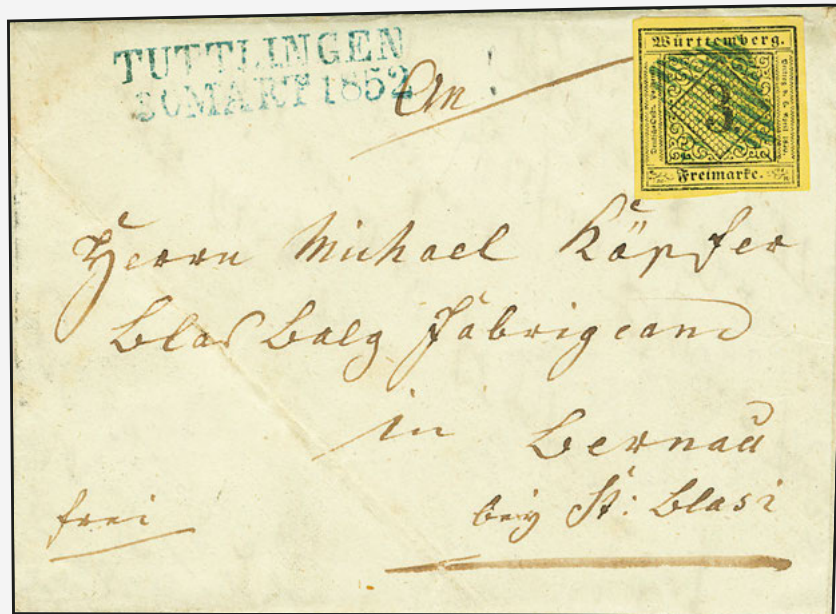 TUTTLINGEN
30 MART 1852
An
Württemberg.
3.
Freimarke.
Herrn Michael Köpfer
Blas Balg Fabrigeand
in Bernau
bey St: Blasi
frei